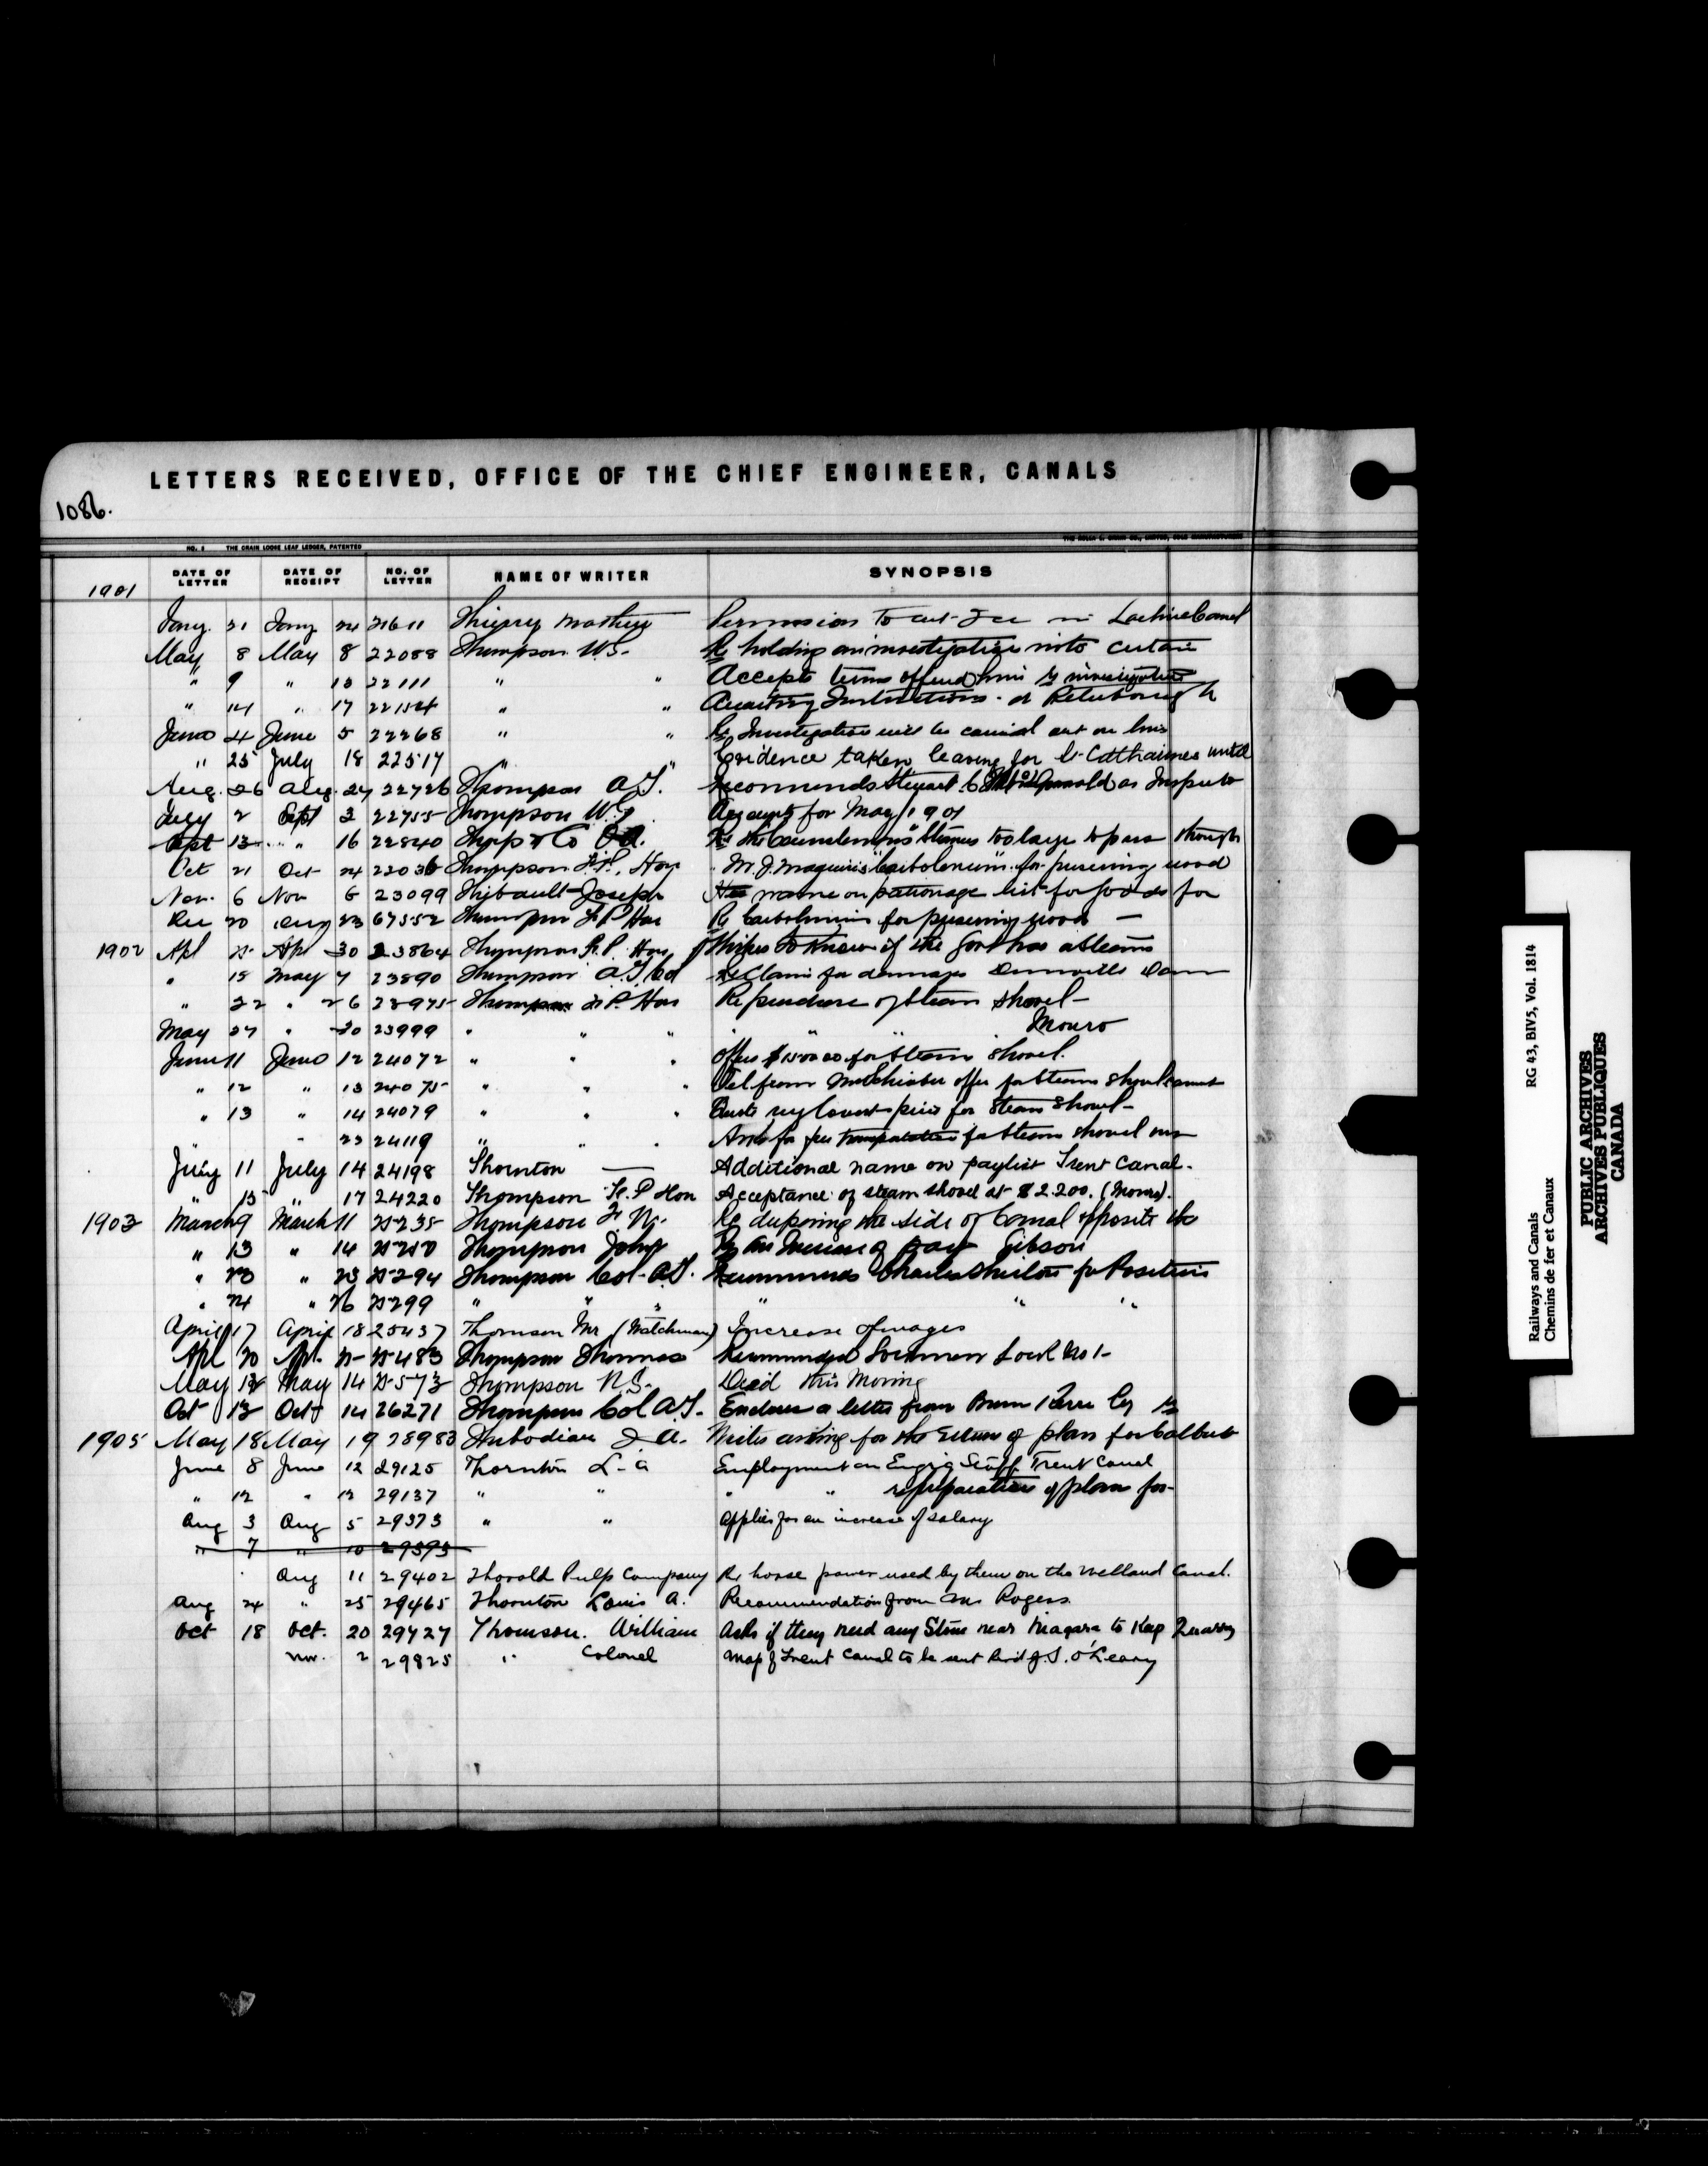 LETTERS RECEIVED, OFFICE OF THE CHIEF ENGINEER, CANALS
1086.
NO. 8 THE CRAIN LOOSE LEAF LEDGER, PATENTED
DATE OF LETTER DATE OF RECEIPT NO. OF LETTER NAME OF WRITER SYNOPSIS
1901
Jany. 21 Jany 24 21611 Thierry Permission to cut Ice in Lachine Canal
May 8 May 8 22088 Thompson W.G. Re holding an investigation into certain
" 9 " 13 22111 " " Accepts terms offered him re investigation
" 14 " 17 22154 " " Awaiting Instructions at Peterborough
June 4 June 5 22268 " " Re Investigation will be carried out on lines
" 25 July 18 22517 " " Evidence taken leaving for St Catharines until
Aug. 26 Aug. 27 22726 Thompson A.T. Recommends Stewart as Inspector
July 2 Sept 2 22755 Thompson W.G. Accounts for May 1901
Sept 13 " 16 22840 & Co Re the steamer too large to pass through
Oct 21 Oct 24 Thompson F.P. Hon " M.J. Maguire's "Carbolenium" for preserving wood
Nov. 6 Nov 6 23099 Thibault Joseph name on patronage list for goods for
Dec 20 23 67552 Thompson F P Hon Re Carbolenium for preserving wood —
1902 Apl 25 Apl 30 23864 Thompson F.P. Hon Wishes to know if the Govt has a steam
" 15 May 7 23890 Thompson A.T. Col Re Claim for damages Dunnville Dam
" 22 " 26 23975 Thompson F.P. Hon Re purchase of steam shovel -
May 27 " 30 23999 " " " " " " Mouro
June 11 June 12 24072 " " " offers $1500.00 for steam shovel.
" 12 " 13 24075 " " " Tel. from offer for steam shovel
" 13 " 14 24079 " " " Quote my lowest price for steam shovel -
" - 23 24119 " " " Asks for free transportation for steam shovel
July 11 July 14 24198 Thornton — Additional name on paylist Trent Canal.
" 15 " 17 24220 Thompson F.P Hon Acceptance of steam shovel at $2.200. (Mouro).
1903 March 9 March 11 25235 Thompson F. W. Re deepening the side of Canal opposite the
" 13 " 14 Thompson John Re An Increase of pay Gibson
" 23 " 25 25294 Thompson Col. A.T. Recommends Charles for Position
" 24 " 26 25299 " " " " " "
April 17 April 18 25437 Thomson Mr (Watchman) Increase of wages
Apl 20 Apl. 25 25483 Thompson Thomas Recommended Lock No 1-
May 12 May 14 25573 Thompson Died this Morning
Oct 13 Oct 14 26271 Thompson Col A.T. Encloses a letter from Co re
1905 May 18 May 19 28983 J. A. Writes asking for the return of plan for Culbute
June 8 June 12 29125 Thornton L. A Employment on Eng'g Staff Trent Canal
" 12 " 13 29137 " " " " re preparation of plans for
Aug 3 Aug 5 29373 " " applies for an increase of salary
" 7 " 10 29393
Aug 11 29402 Thorold Pulp Company Re horse power used by them on the Welland Canal.
Aug 24 " 25 29465 Thornton Louis A. Recommendation from Mr Rogers
Oct 18 Oct. 20 29727 Thomson. William Asks if they need any Stone near Niagara to Keep Quarry
Nov. 2 29825 " Colonel Map of Trent Canal to be sent Rev'd J.S. O'Leary
RG 43, BIV5, Vol. 1814
Railways and Canals
Chemins de fer et Canaux
PUBLIC ARCHIVES
ARCHIVES PUBLIQUES
CANADA